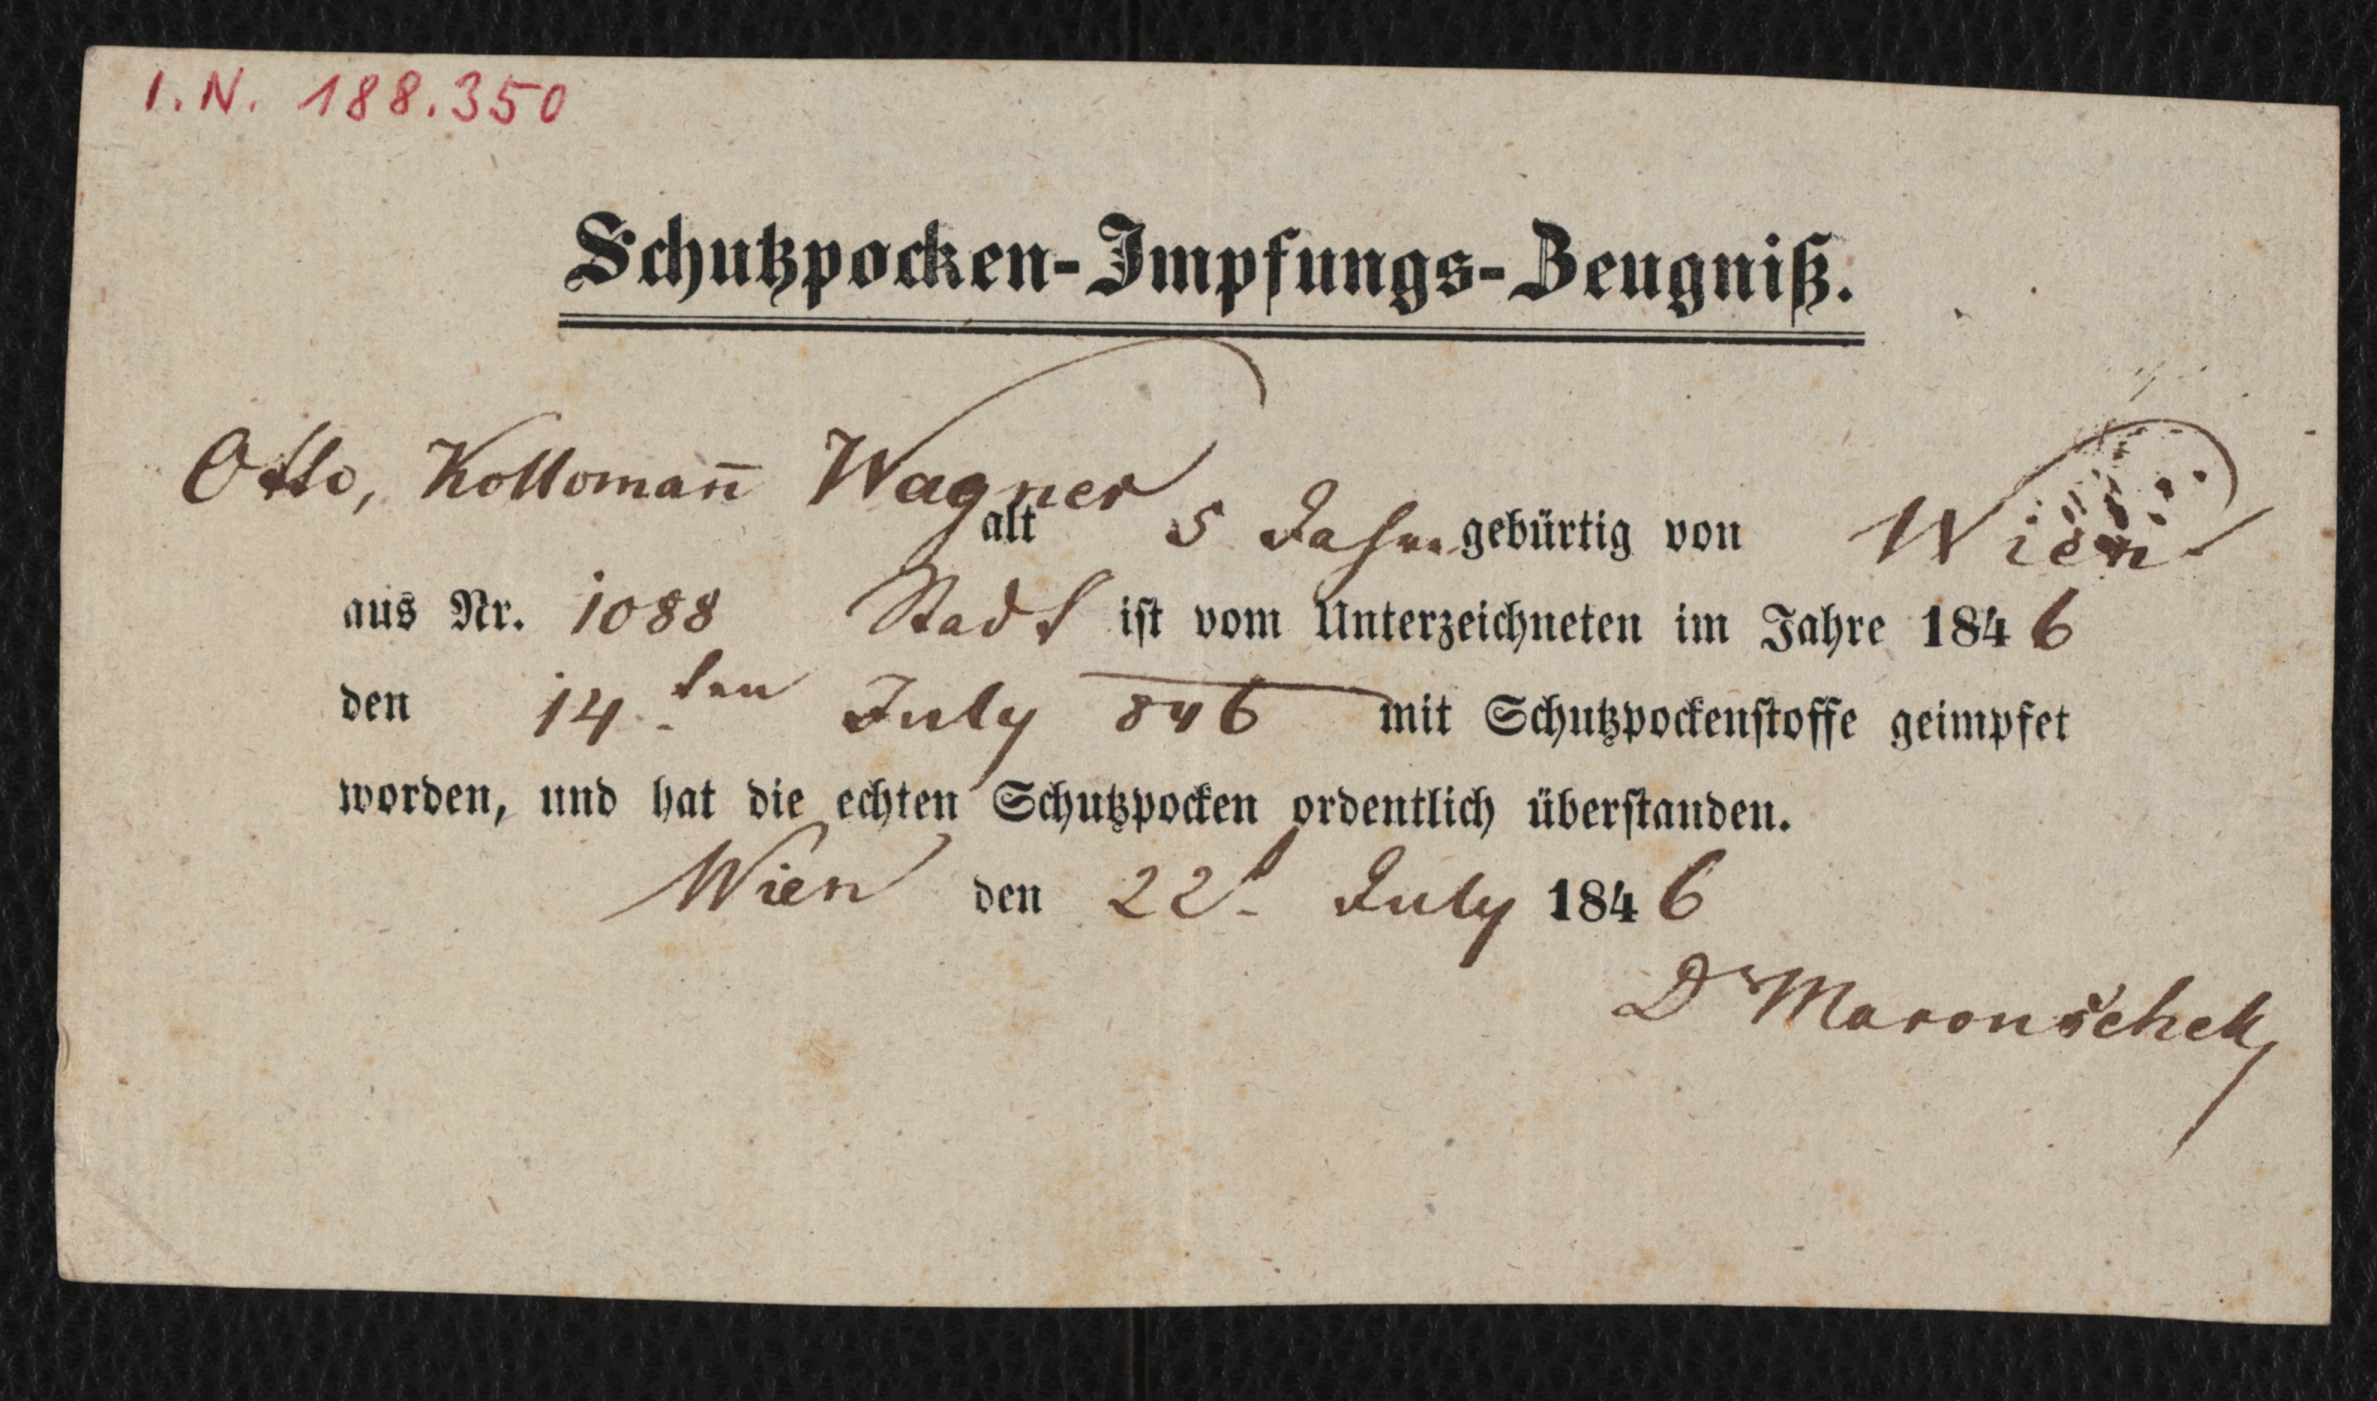 I. N. 188.350
Schutzpocken-Impfungs-Zeugniß.
Otto, Kolloman̄ Wagner
alt 5 Jahre gebürtig von Wien
aus Nr. 1088 Stadt ist vom Unterzeichneten im Jahre 1846
den 14ten July 846 mit Schutzpockenstoffe geimpfet
worden, und hat die echten Schutzpocken ordentlich überstanden.
Wien den 22t July 1846
Dr Maronschek